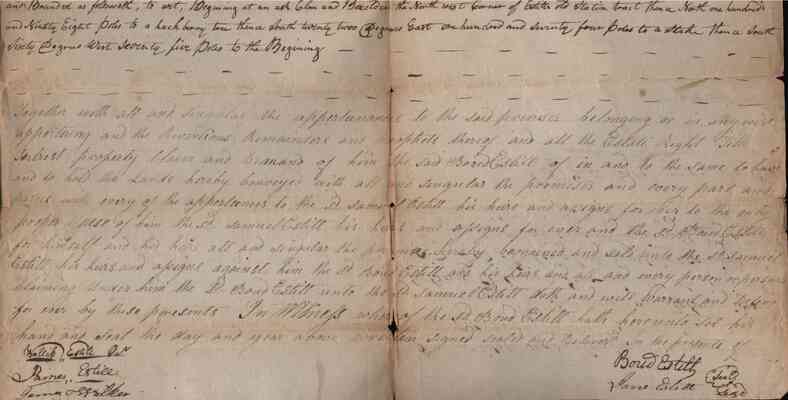 and Bounded as followeth, to wit, Begining at an ash Elm and the North west Corner of Estills old Station tract thence North one hundred
and Ninety Eight Poles to a hackberry tree thence South twenty two Degrees East one hundred and seventy four Poles to a Stake thence South
Sixty Degrees West Seventy five Poles to the Begining
Together with all and singular the appertunances to the said premises belonging or in any wise
appertaining and the Reversions Remainders and profits thereof and all the Estate Right Title
Interest property Claim and Demand of him the said Boud Estill of in and to the same to have
and to hold the Lands hereby Conveyed with all and singular the premises and every part and
parcel with every of the appertunances to the sd Samuel Estill his heirs and assigns for ever to the only
proper use of him the sd Samuel Estill his heirs and assigns for ever and the sd Boud Estill
for himself and his heirs all and singular the premises hereby and sold unto the sd Samuel
Estill his heirs and assigns against him the sd Boud Estill and his heirs and all and every person or persons
claiming under him the sd Boud Estill unto the sd Samuel Estill doth and will Warrant and Defend
for ever by these presents In Witness where of the sd Boud Estill hath hereunto set his
hand and seal the day and year above written signed sealed and Delivered In the presence of
Wallace Estill
James Estill
James
Boud Estill Seal
Jane Estill Seal